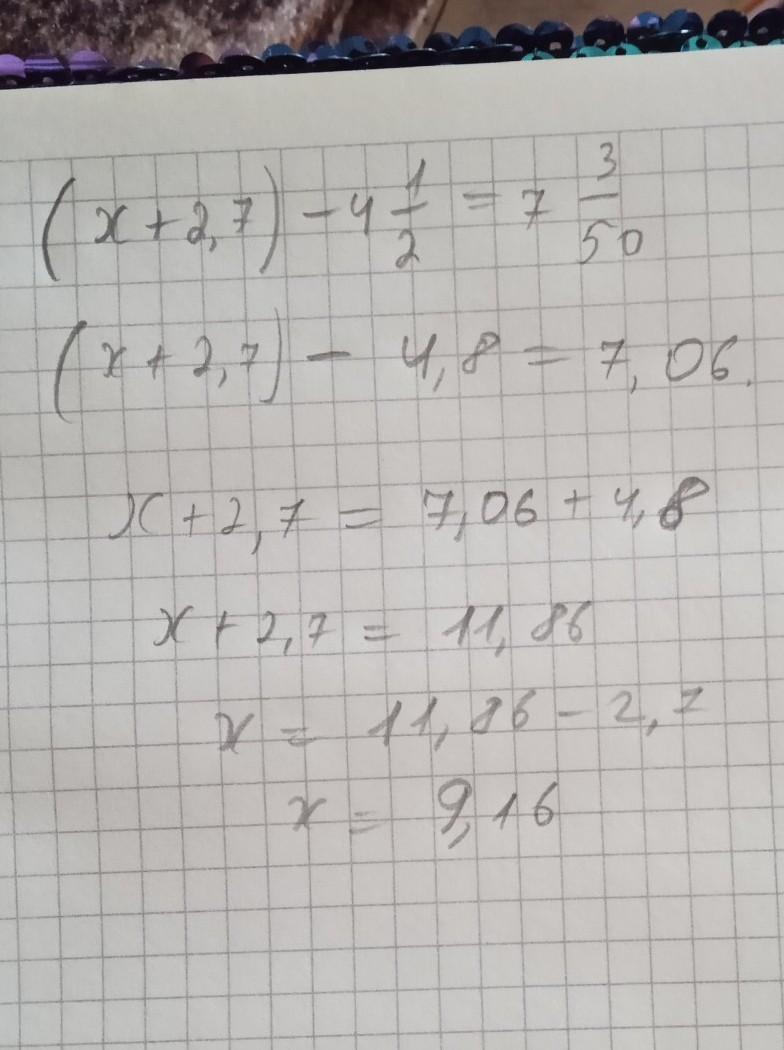 (x + 2,7) - 4 1/2 = 7 3/50
(x + 2,7) - 4,8 = 7,06.
x + 2,7 = 7,06 + 4,8
x + 2,7 = 11,86
x = 11,86 - 2,7
x = 9,16